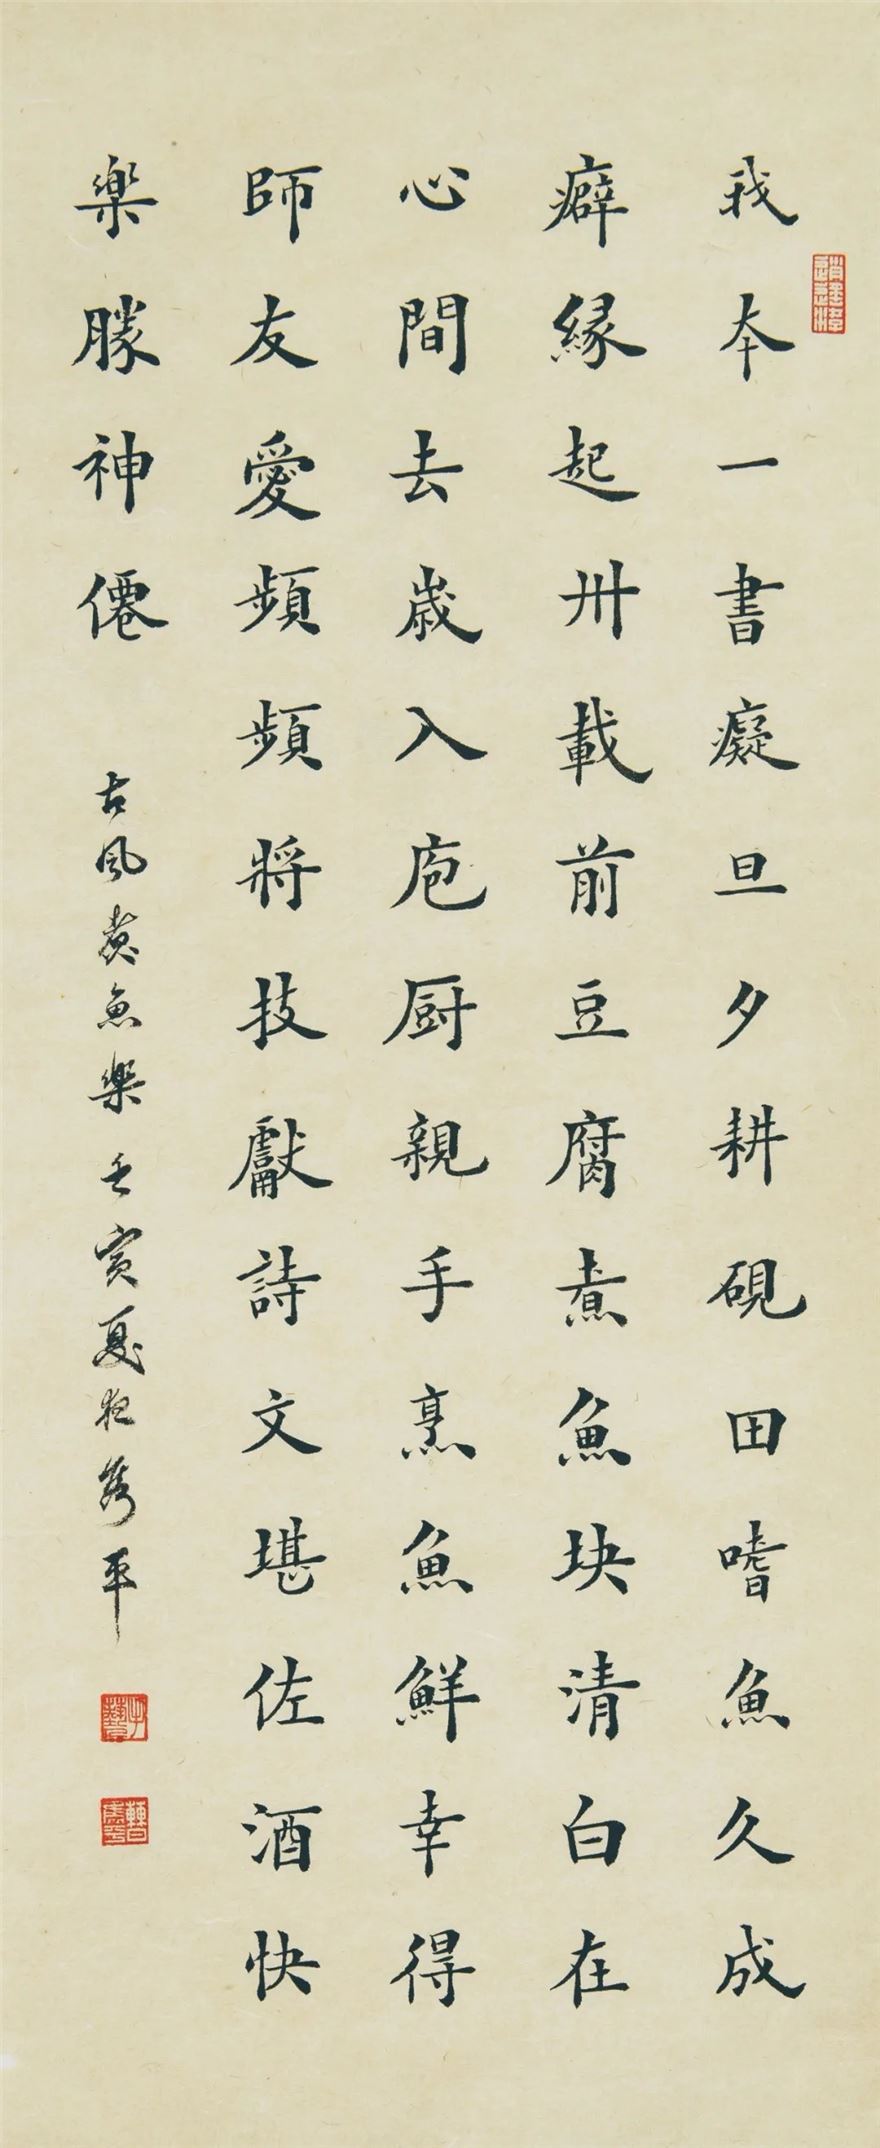 我本一書癡旦夕耕硯田嗜魚久成
癖緣起卅載前豆腐煮魚块清白在
心間去歲入庖厨親手烹魚鮮幸得
師友愛頻頻將技獻詩文堪佐酒快
樂勝神僊
古風煮魚樂壬寅夏夜秀平